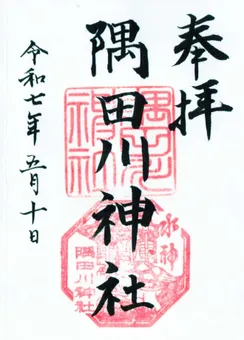 奉拝
隅田川神社
令和七年五月十日
隅田川神社
水神
隅田川神社